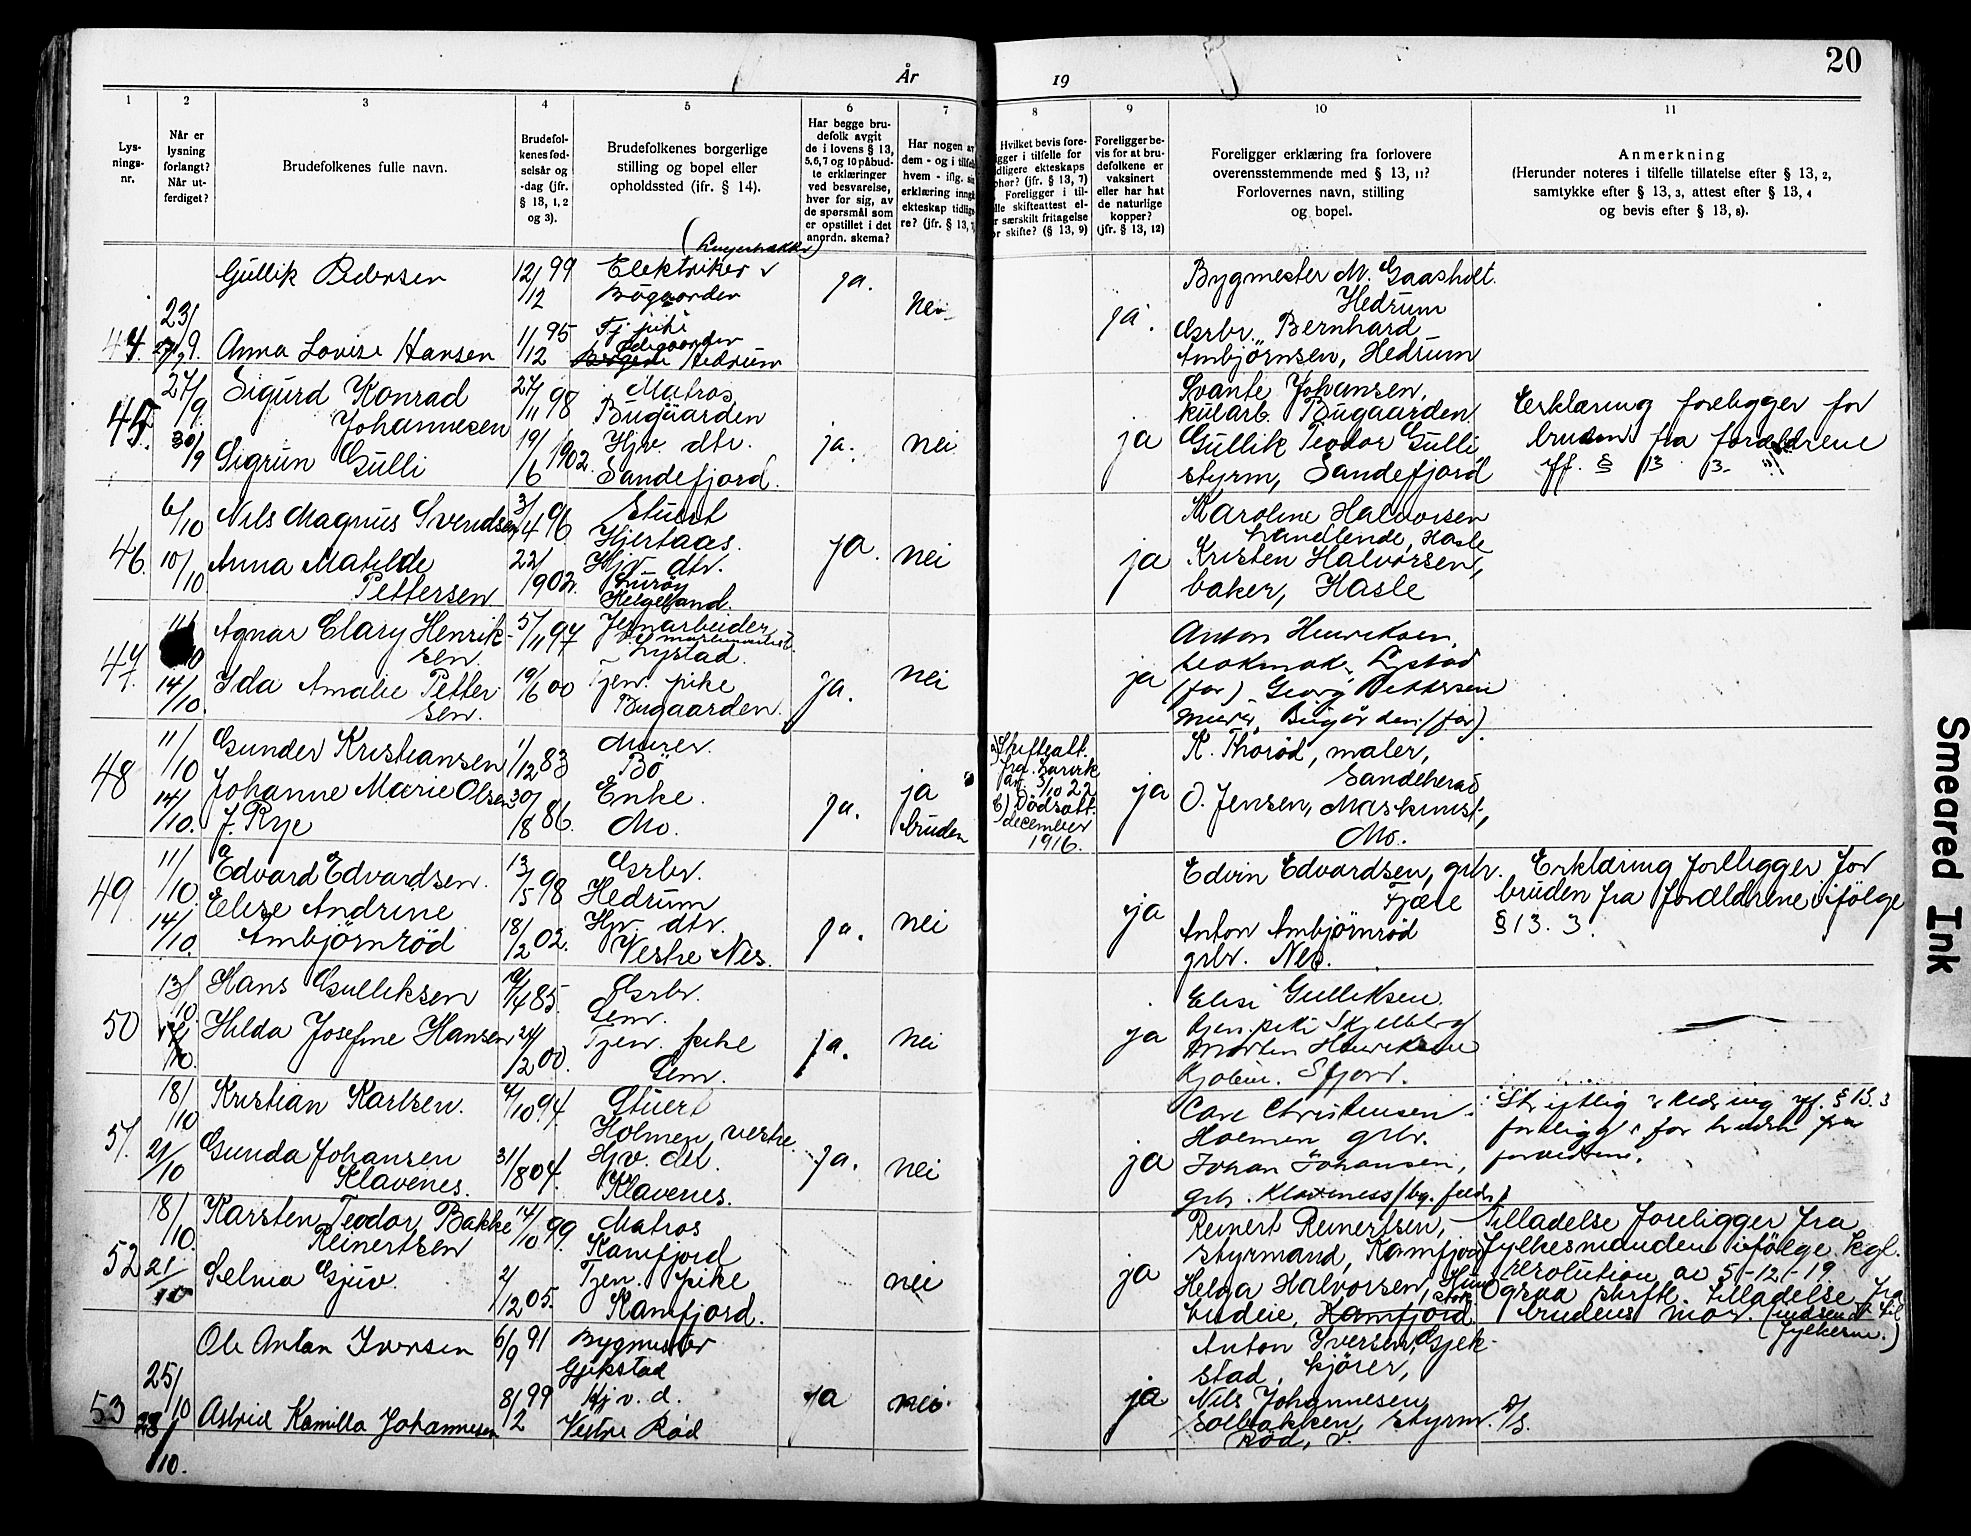 20
År
19
1
2
3
4
5
6
7
8
9
10
11
Lys-
nings-
nr.
Når er
lysning
forlangt?
Når ut-
ferdiget?
Brudefolkenes fulle navn.
Brudefol-
kenes fød-
selsår og
-dag (jfr.
§ 13, 1, 2
og 3).
Brudefolkenes borgerlige
stilling og bopel eller
opholdssted (ifr. § 14).
Har begge bru-
defolk avgit
de i lovens § 13,
5,6,7 og 10 påbud-
te erklæringer
ved besvarelse,
hver for sig, av
de spørsmål som
er opstillet i det
anordn. skema?
Har nogen av
dem - og i tilfelle
hvem - iflg. sin
erklæring inngått
ekteskap tidlige-
re? (jfr. § 13,
Hvilket bevis fore-
ligger i tilfelle for
tidligere ekteskaps
ophør? (jfr. § 13, 7)
Foreligger i til-
felle skifteattest el-
ler særskilt fritagelse
for skifte? (§ 13, 9)
Foreligger be-
vis for at bru-
defolkene er
vaksinert
eller har hat
de naturlige
kopper?
(jfr. § 13, 12)
Foreligger erklæring fra forlovere
overensstemmende med § 13, 11?
Forlovernes navn, stilling
og bopel.
Anmerkning
(Herunder noteres i tilfelle tillatelse efter § 13, 2,
samtykke efter § 13, 3, attest efter § 13, 4
og bevis efter § 13, 8).
44.
23/
27/9 9.
Gullik Pedersen
Anna Lovise Hansen
12/12 99
1/12 95
Elektriker
Bögaarden
Tj. pike
Hedrum
ja.
nei
ja.
Bygmester M. Gaasholt.
Hedrum
Gsrbr. Bernhard
Ambjörnsen, Hedrum
45.
27/9.
30/9
Sigurd Konrad
Johannesen
Sigrun Gulli
27/11 98
19/6 1902.
Matros
Bugaarden
Hjv. dtr.
Sandefjord.
ja.
nei
ja
Svante Johansen,
kularb. Bugaarden
Gullik Teodor Gulli
styrm, Sandefjord
Erklæring foreligger for
bruden fra forældrene
jff. § 13 3.
46.
6/10
10/10
Nils Magnus Svendsen
Anna Matilde
Pettersen
3/4 96
22/ 1902.
Stuert
Hjertaas.
Hjv. dtr.
Lurøy
Helgeland.
ja.
nei
ja
Karoline Halvorsen
handlende, Hasle
Kristen Halvorsen,
baker, Hasle
47.
10
14/10.
Agnar Clary Henrik-
sen.
Ida Amalie Petter
sen.
5/11 97
19/6 00
Jernarbeider
Lystad.
Tjen. pike
Bugaarden.
ja.
nei
ja
Anton Henriksen,
Lystad
(far) Georg Pettersen
murer, Bugården (far).
48
11/10
14/10.
Gunder Kristiansen
Johanne Marie Olsen
f. Rye
1/12 83
30/8 86.
Murer.
Bö
Enke.
Mo.
ja.
ja
bruden
a) Skifteatt.
fra Larvik
av 3/10 22
b) Dödsatt.
december
1916.
ja
K. Thorød, maler,
Sandeherad
O. Jensen, Maskinist,
Mo.
49.
11/10.
14/10.
Edvard Edvardsen.
Elise Andrine
Ambjörnröd
13/5 98
18/2 02.
Gsrbr.
Hedrum
Hjv. dtr.
Vestre Nes.
ja.
nei
ja
Edvin Edvardsen, grbr.
Fjære
Anton Ambjörnröd
grbr. Nes.
Erklæring foreligger for
bruden fra forældrene ifölge
§ 13. 3.
50
13/10.
10.
Hans Gulliksen
Hilda Josefine Hansen
19/4 85.
24/2 00.
Gsrbr.
Lem.
Tjen. pike
Lem.
ja.
nei
ja
Elise Gulliksen.
tjen. pike Skjelberg
Morten Henriksen
Sfjord.
51.
18/10
21/10
Kristian Karlsen.
Gunda Johansen
Klavenes.
4/10 94.
31/8 04.
Stuert
Holmen, vestre.
Hjv. dtr.
Klavenes.
ja.
nei
ja
Carl Christensen.
Holmen grbr.
Johan Johansen,
grbr. Klavenes
Skriftlig erklæring jff. § 13. 3
foreligger for bruden fra
forældrene.
52
18/10.
21/10
Karsten Teodor Bakke
Reinertsen
Selma Gjuv.
14/10 99.
2/12 05.
Matros
Kamfjord
Tjen. pike
Kamfjord.
nei
ja
Reinert Reinertsen,
styrmand, Kamfjord
Helga Halvorsen,
budeie, Kamfjord
Tilladelse foreligger fra
fylkesmanden ifölge kgl.
resolution av 5-12-19.
Ogsaa skriftl. tilladelse fra
brudens mor. (indsendt til
fylkesm.)
53
25/10
28/10.
Ole Anton Iversen
Astrid Kamilla Johannesen
6/9 91
8/2 99
Bygmester
Gjekstad
Hjv. d.
Vestre Rød
ja
nei.
ja
Anton Iversen, Gjek-
stad, kjører,
Nils Johannesen
Solbakken, styrm.
Rød, v.
Smeared Ink